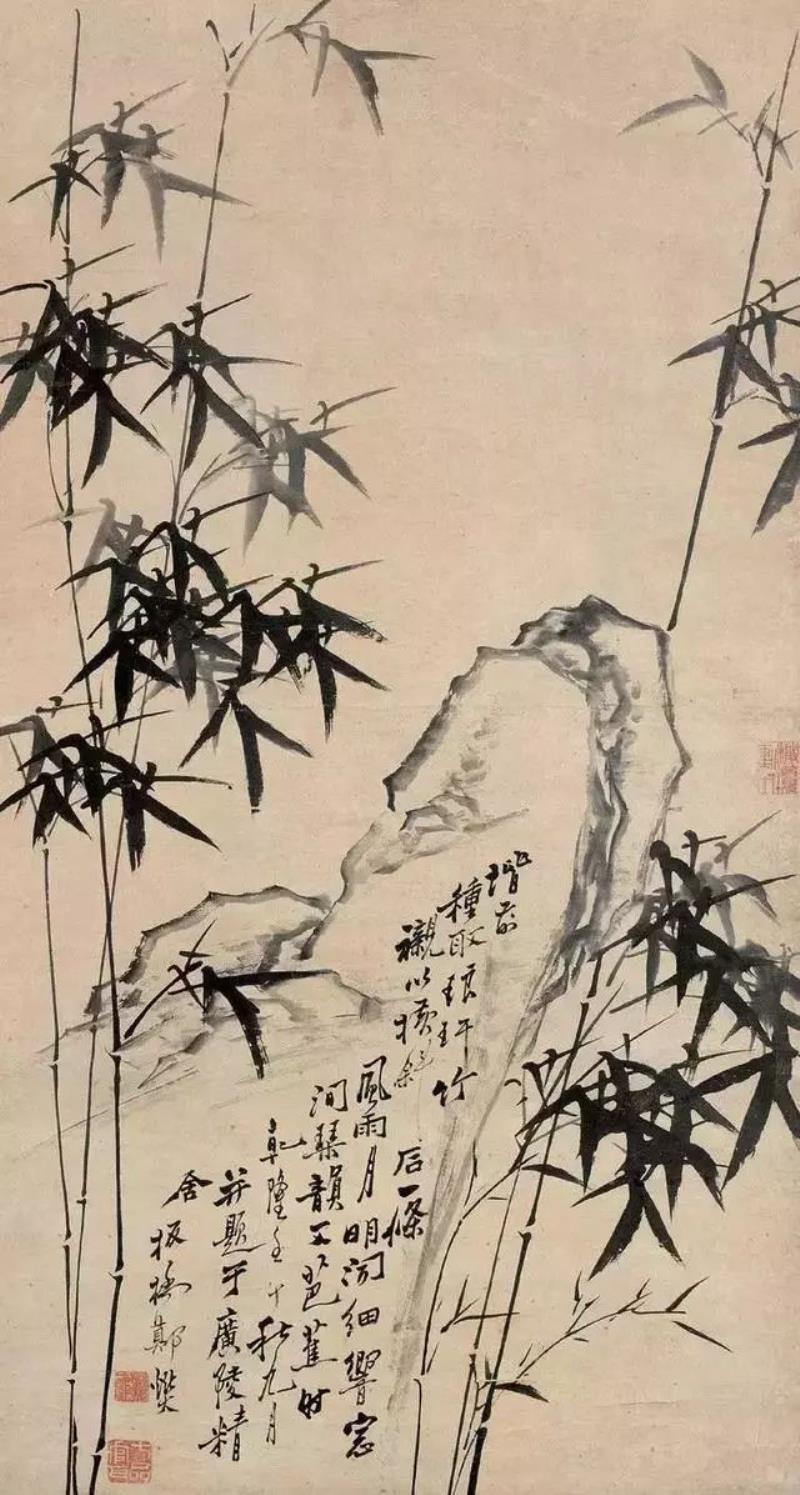 階前
種取琅玕竹
襯以橫斜石一條
風雨月明聞細響窓
間琴韻芭蕉
乾隆壬午秋九月
并題于廣陵精
舍板橋鄭燮